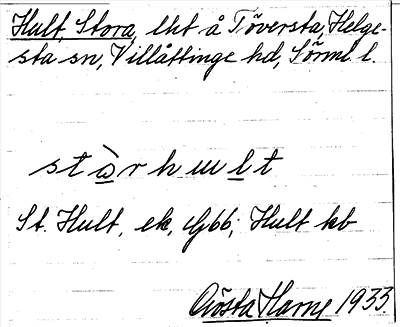 Hult, Stora, lht å Töversta, Helge-
sta sn, Villåttinge hd, Sörml l.
stòrhult
St. Hult, ek, Gbb; Hult kb
Gösta Harne 1933.